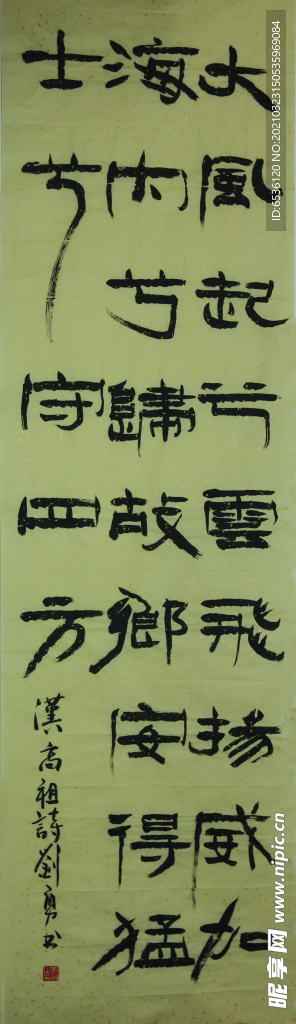 大風起兮雲飛揚威加
海内兮歸故鄉安得猛
士兮守四方
漢高祖詩劉勇書
ID:6536120 NO:20210323150535969084
昵享网 www.nipic.cn